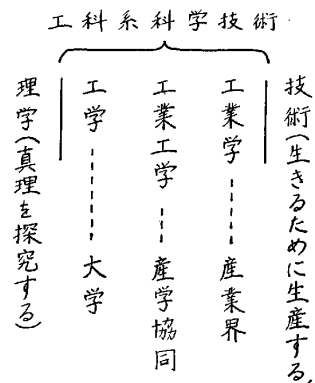 工科系科学技術
技術(生きるために生産する)
工業学------産業界
工業工学---産学協同
工学------大学
理学(真理を探究する)